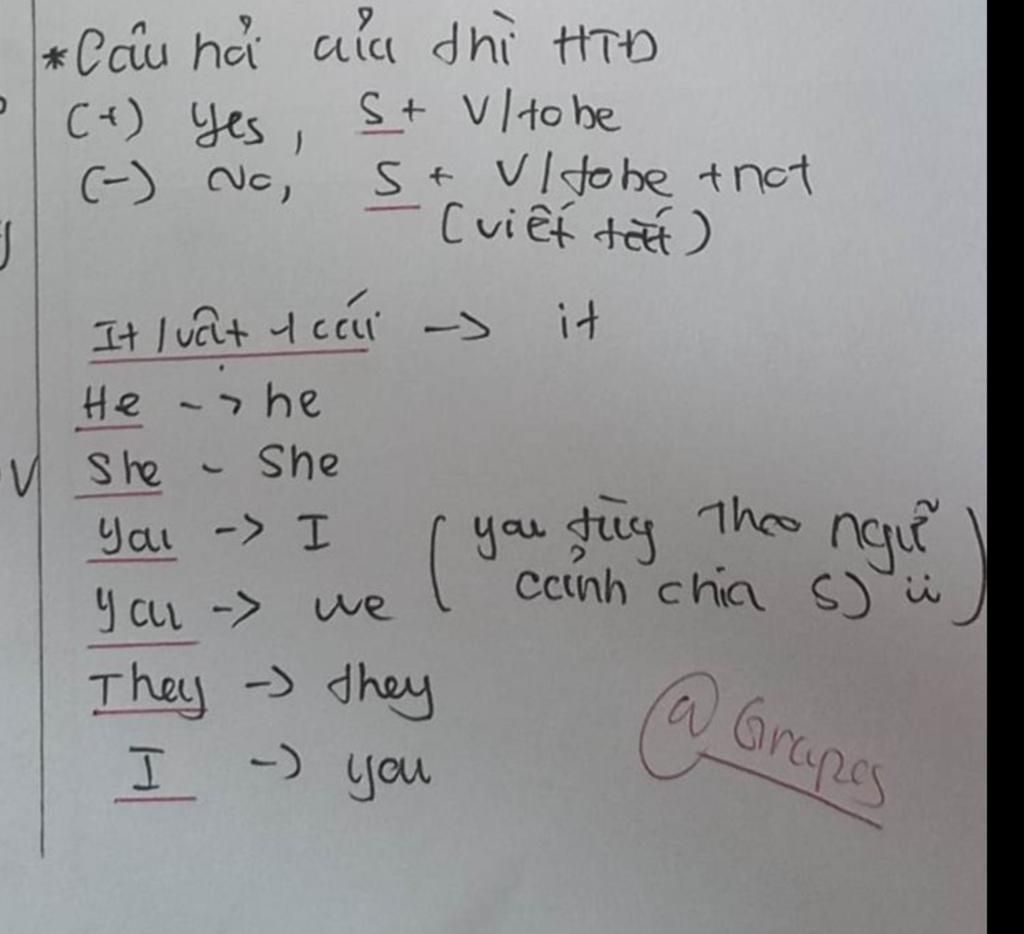 *Câu hỏi của thì HTĐ
(+) Yes, S + V/tobe
(-) No, S + V/tobe + not
(viết tắt)
It / vật 1 cái -> it
He -> he
She - She
you -> I
you -> we
(you tùy theo ngữ
cảnh chia S) ü)
They -> they
I -> you
@Grapes
V